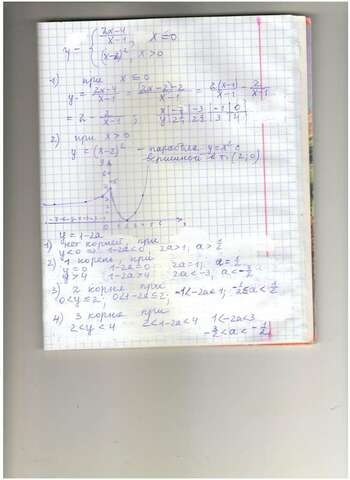 y = { (2x-4)/(x-1), x ≤ 0
(x-2)², x > 0
1) при x ≤ 0
y = (2x-4)/(x-1) = (2x-2-2)/(x-1) = 2(x-1)/(x-1) - 2/(x-1)
= 2 - 2/(x-1);
2) при x > 0
y = (x-2)² - парабола y=x² с
вершиной в т. (2;0)
y = 1-2a
1) нет корней, при
y<0 1-2a<0 2a>1, a>1/2
2) 1 корень, при
y=0 1-2a=0 2a=1; a=1/2
y>4 1-2a>4 2a<-3, a<-3/2
3) 2 корня при
0<y≤2; 0<1-2a≤2; -1<-2a≤1; -1/2≤a<1/2
4) 3 корня при
2<y<4 2<1-2a<4 1<-2a<3
-3/2<a<-1/2